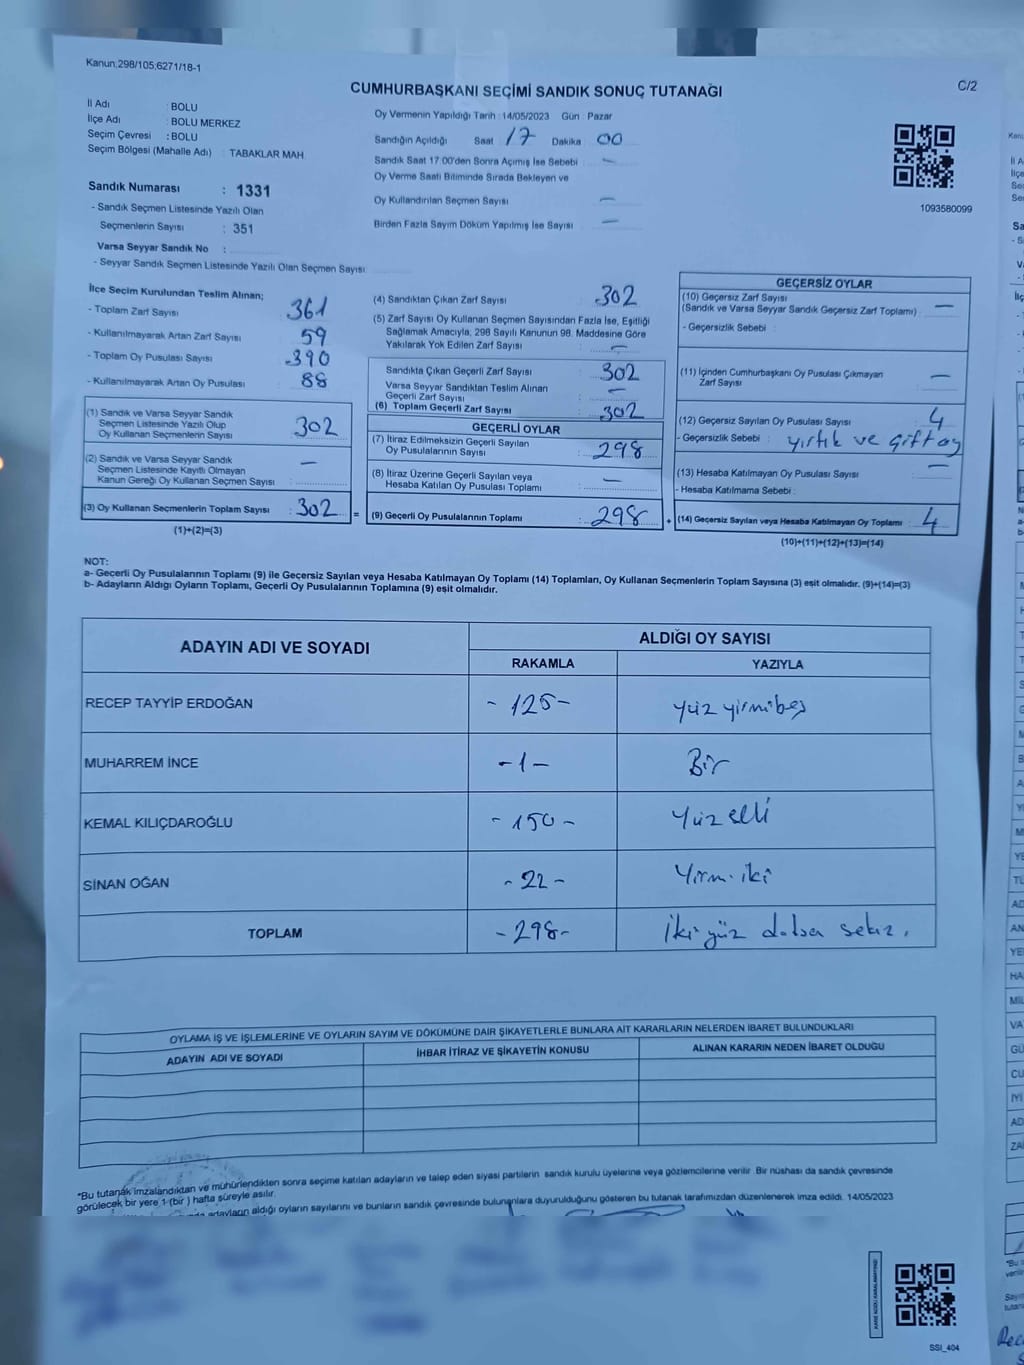 Kanun;298/105,6271/18-1
C/2
CUMHURBAŞKANI SEÇİMİ SANDIK SONUÇ TUTANAĞI
İl Adı : BOLU
İlçe Adı : BOLU MERKEZ
Seçim Çevresi : BOLU
Seçim Bölgesi (Mahalle Adı) : TABAKLAR MAH.
Sandık Numarası : 1331
- Sandık Seçmen Listesinde Yazılı Olan
Seçmenlerin Sayısı : 351
Varsa Seyyar Sandık No :
- Seyyar Sandık Seçmen Listesinde Yazılı Olan Seçmen Sayısı:
Oy Vermenin Yapıldığı Tarih : 14/05/2023 Gün : Pazar
Sandığın Açıldığı Saat : 17 Dakika : 00
Sandık Saat 17:00'den Sonra Açımış İse Sebebi : —
Oy Verme Saati Bitiminde Sırada Bekleyen ve
Oy Kullandırılan Seçmen Sayısı : —
Birden Fazla Sayım Döküm Yapılmış İse Sayısı : —
1093580099
İlçe Seçim Kurulundan Teslim Alınan;
- Toplam Zarf Sayısı : 361
- Kullanılmayarak Artan Zarf Sayısı : 59
- Toplam Oy Pusulası Sayısı : 390
- Kullanılmayarak Artan Oy Pusulası : 88
(1) Sandık ve Varsa Seyyar Sandık
Seçmen Listesinde Yazılı Olup
Oy Kullanan Seçmenlerin Sayısı : 302
(2) Sandık ve Varsa Seyyar Sandık
Seçmen Listesinde Kayıtlı Olmayan
Kanun Gereği Oy Kullanan Seçmen Sayısı : —
(3) Oy Kullanan Seçmenlerin Toplam Sayısı : 302 =
(1)+(2)=(3)
(4) Sandıktan Çıkan Zarf Sayısı : 302
(5) Zarf Sayısı Oy Kullanan Seçmen Sayısından Fazla İse, Eşitliği
Sağlamak Amacıyla, 298 Sayılı Kanunun 98. Maddesine Göre
Yakılarak Yok Edilen Zarf Sayısı : —
Sandıkta Çıkan Geçerli Zarf Sayısı : 302
Varsa Seyyar Sandıktan Teslim Alınan
Geçerli Zarf Sayısı : —
(6) Toplam Geçerli Zarf Sayısı : 302
GEÇERLİ OYLAR
(7) İtiraz Edilmeksizin Geçerli Sayılan
Oy Pusulalarının Sayısı : 298
(8) İtiraz Üzerine Geçerli Sayılan veya
Hesaba Katılan Oy Pusulası Toplamı : —
(9) Geçerli Oy Pusulalarının Toplamı : 298 +
GEÇERSİZ OYLAR
(10) Geçersiz Zarf Sayısı
(Sandık ve Varsa Seyyar Sandık Geçersiz Zarf Toplamı) : —
- Geçersizlik Sebebi :
(11) İçinden Cumhurbaşkanı Oy Pusulası Çıkmayan
Zarf Sayısı : —
(12) Geçersiz Sayılan Oy Pusulası Sayısı : 4
- Geçersizlik Sebebi : yırtık ve çift oy
(13) Hesaba Katılmayan Oy Pusulası Sayısı : —
- Hesaba Katılmama Sebebi :
(14) Geçersiz Sayılan veya Hesaba Katılmayan Oy Toplamı : 4
(10)+(11)+(12)+(13)=(14)
NOT:
a- Geçerli Oy Pusulalarının Toplamı (9) ile Geçersiz Sayılan veya Hesaba Katılmayan Oy Toplamı (14) Toplamları, Oy Kullanan Seçmenlerin Toplam Sayısına (3) eşit olmalıdır. (9)+(14)=(3)
b- Adayların Aldığı Oyların Toplamı, Geçerli Oy Pusulalarının Toplamına (9) eşit olmalıdır.
ADAYIN ADI VE SOYADI
ALDIĞI OY SAYISI
RAKAMLA YAZIYLA
RECEP TAYYİP ERDOĞAN - 125 - yüz yirmibeş
MUHARREM İNCE - 1 - Bir
KEMAL KILIÇDAROĞLU - 150 - Yüz elli
SİNAN OĞAN - 22 - Yirmi iki
TOPLAM - 298 - İki yüz doksan sekiz.
OYLAMA İŞ VE İŞLEMLERİNE VE OYLARIN SAYIM VE DÖKÜMÜNE DAİR ŞİKAYETLERLE BUNLARA AİT KARARLARIN NELERDEN İBARET BULUNDUKLARI
ADAYIN ADI VE SOYADI İHBAR İTİRAZ VE ŞİKAYETİN KONUSU ALINAN KARARIN NEDEN İBARET OLDUĞU
*Bu tutanak imzalandıktan ve mühürlendikten sonra seçime katılan adayların ve talep eden siyasi partilerin sandık kurulu üyelerine veya gözlemcilerine verilir. Bir nüshası da sandık çevresinde
görülecek bir yere 1 (bir) hafta süreyle asılır.
adayların aldığı oyların sayılarını ve bunların sandık çevresinde bulunanlara duyurulduğunu gösteren bu tutanak tarafımızdan düzenlenerek imza edildi. 14/05/2023
KARE KODU KARALAMAYINIZ!
SSI_404